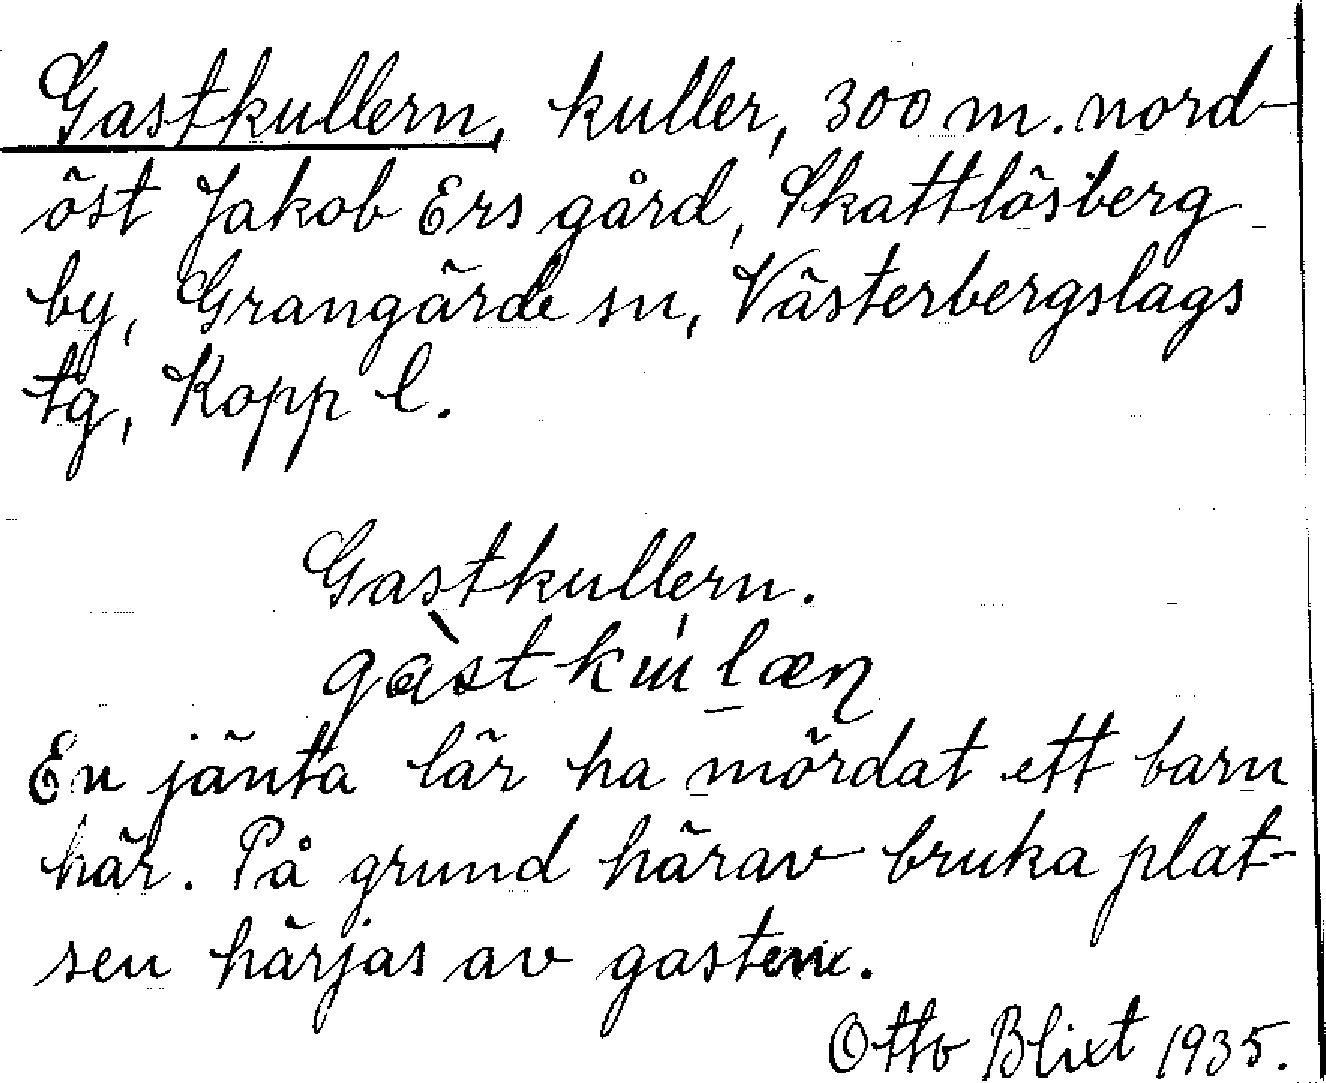 Gastkullern, kuller, 300 m. nord-
öst Jakob Ers gård, Skattlösberg
by, Grangärde sn, Västerbergslags
tg, Kopp l.
Gastkullern.
gàstkúlæn
En jänta lär ha mördat ett barn
här. På grund härav bruka plat-
sen härjas av gasten.
Otto Blixt 1935.